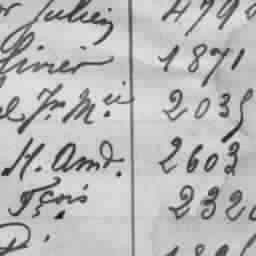 Julien 479
livier 1871
Jn Mci 2035
H. Amd. 2603
Fçois 232